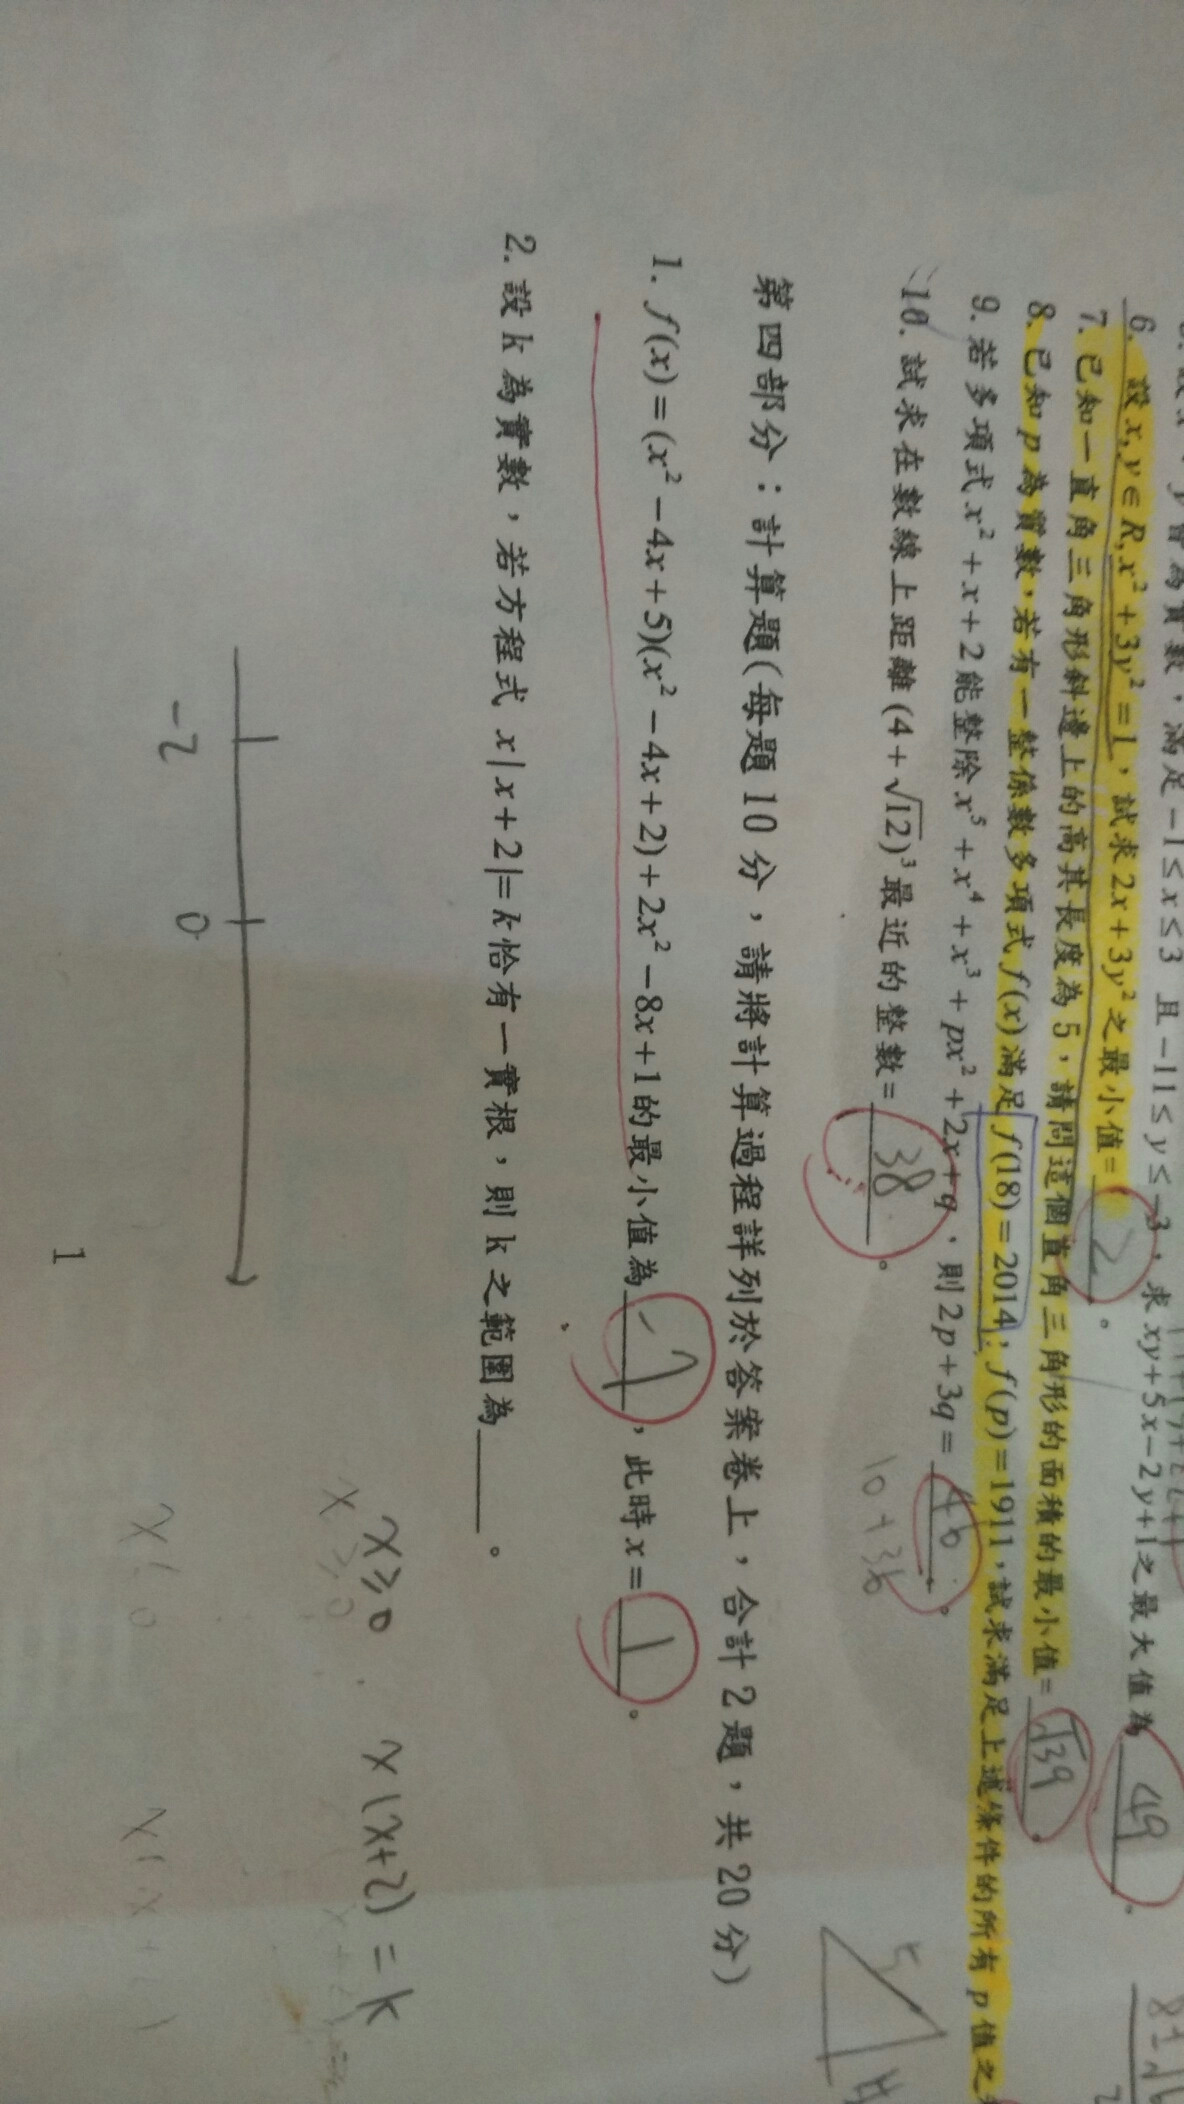 y皆為實數，滿足 -1≤x≤3 且 -11≤y≤-3，求 xy+5x-2y+1之最大值為 49 。
6. 設 x,y∈R, x²+3y²=1，試求 2x+3y² 之最小值= 2 。
7. 已知一直角三角形斜邊上的高其長度為 5，請問這個直角三角形的面積的最小值= √39 。
8. 已知 p 為質數，若有一整係數多項式 f(x) 滿足 f(18)=2014；f(p)=1911，試求滿足上述條件的所有 p 值之
9. 若多項式 x²+x+2 能整除 x⁵+x⁴+x³+px²+2x+q，則 2p+3q= 46 。
10+36
10. 試求在數線上距離 (4+√12)³ 最近的整數= 38 。
5
第四部分：計算題(每題 10 分，請將計算過程詳列於答案卷上，合計 2 題，共 20 分)
1. f(x)=(x²-4x+5)(x²-4x+2)+2x²-8x+1 的最小值為 -1 ，此時 x= 1 。
2. 設 k 為實數，若方程式 x|x+2|=k 恰有一實根，則 k 之範圍為 。
x≥0 x(x+2)=k
x≥0
-2 0
1